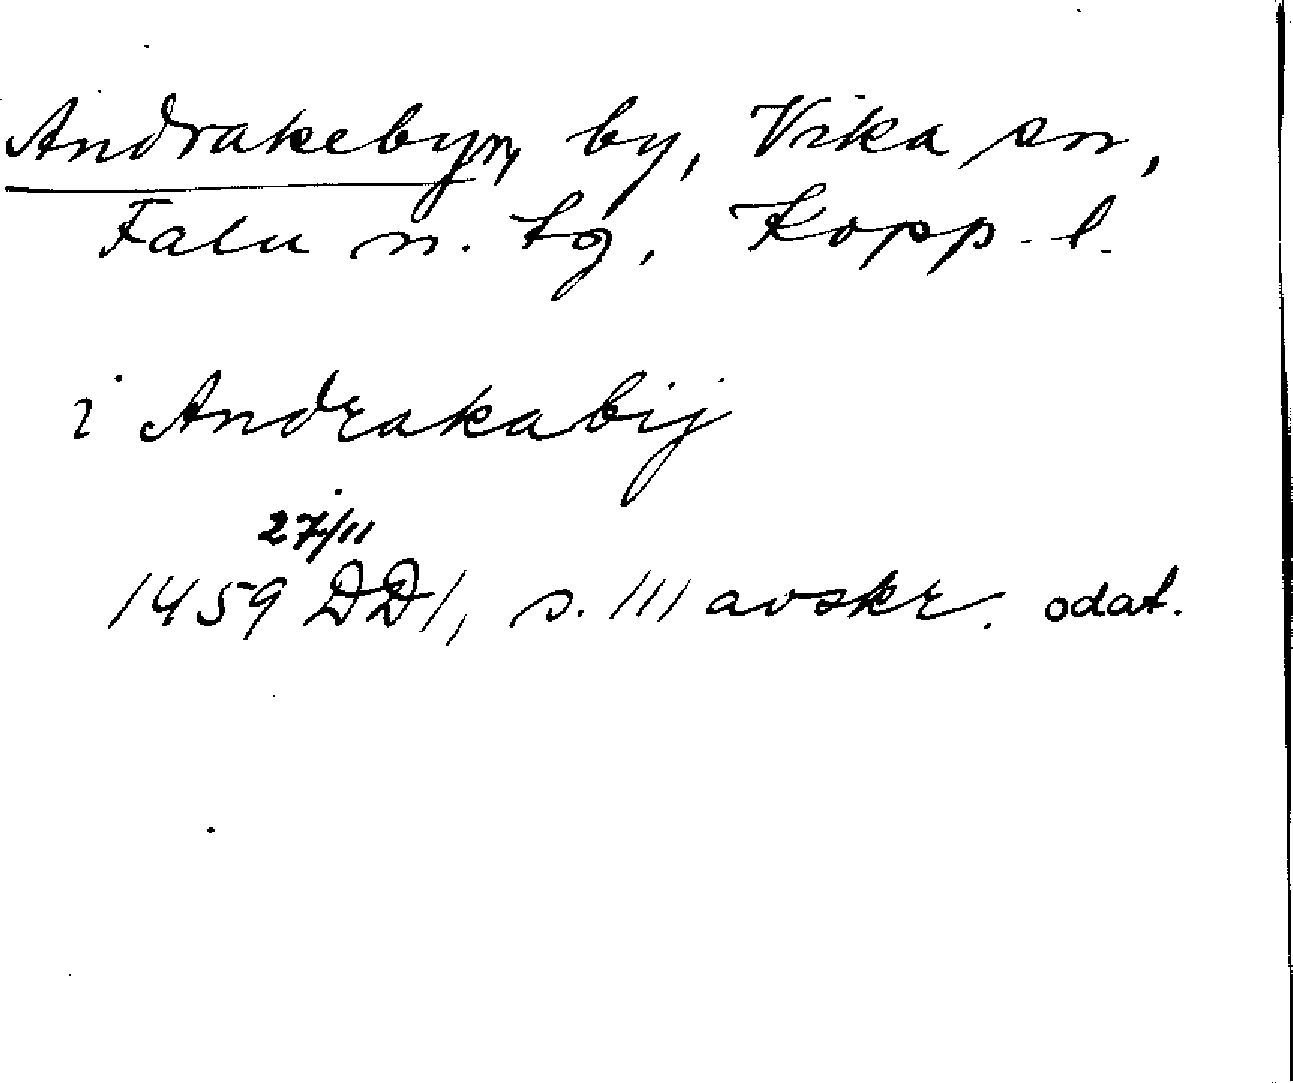 Andrakebyn, by, Vika sn,
Falu n. tg, Kopp. l.
i Andrakabij
27/11
1459 DD1, s. 111 avskr. odat.